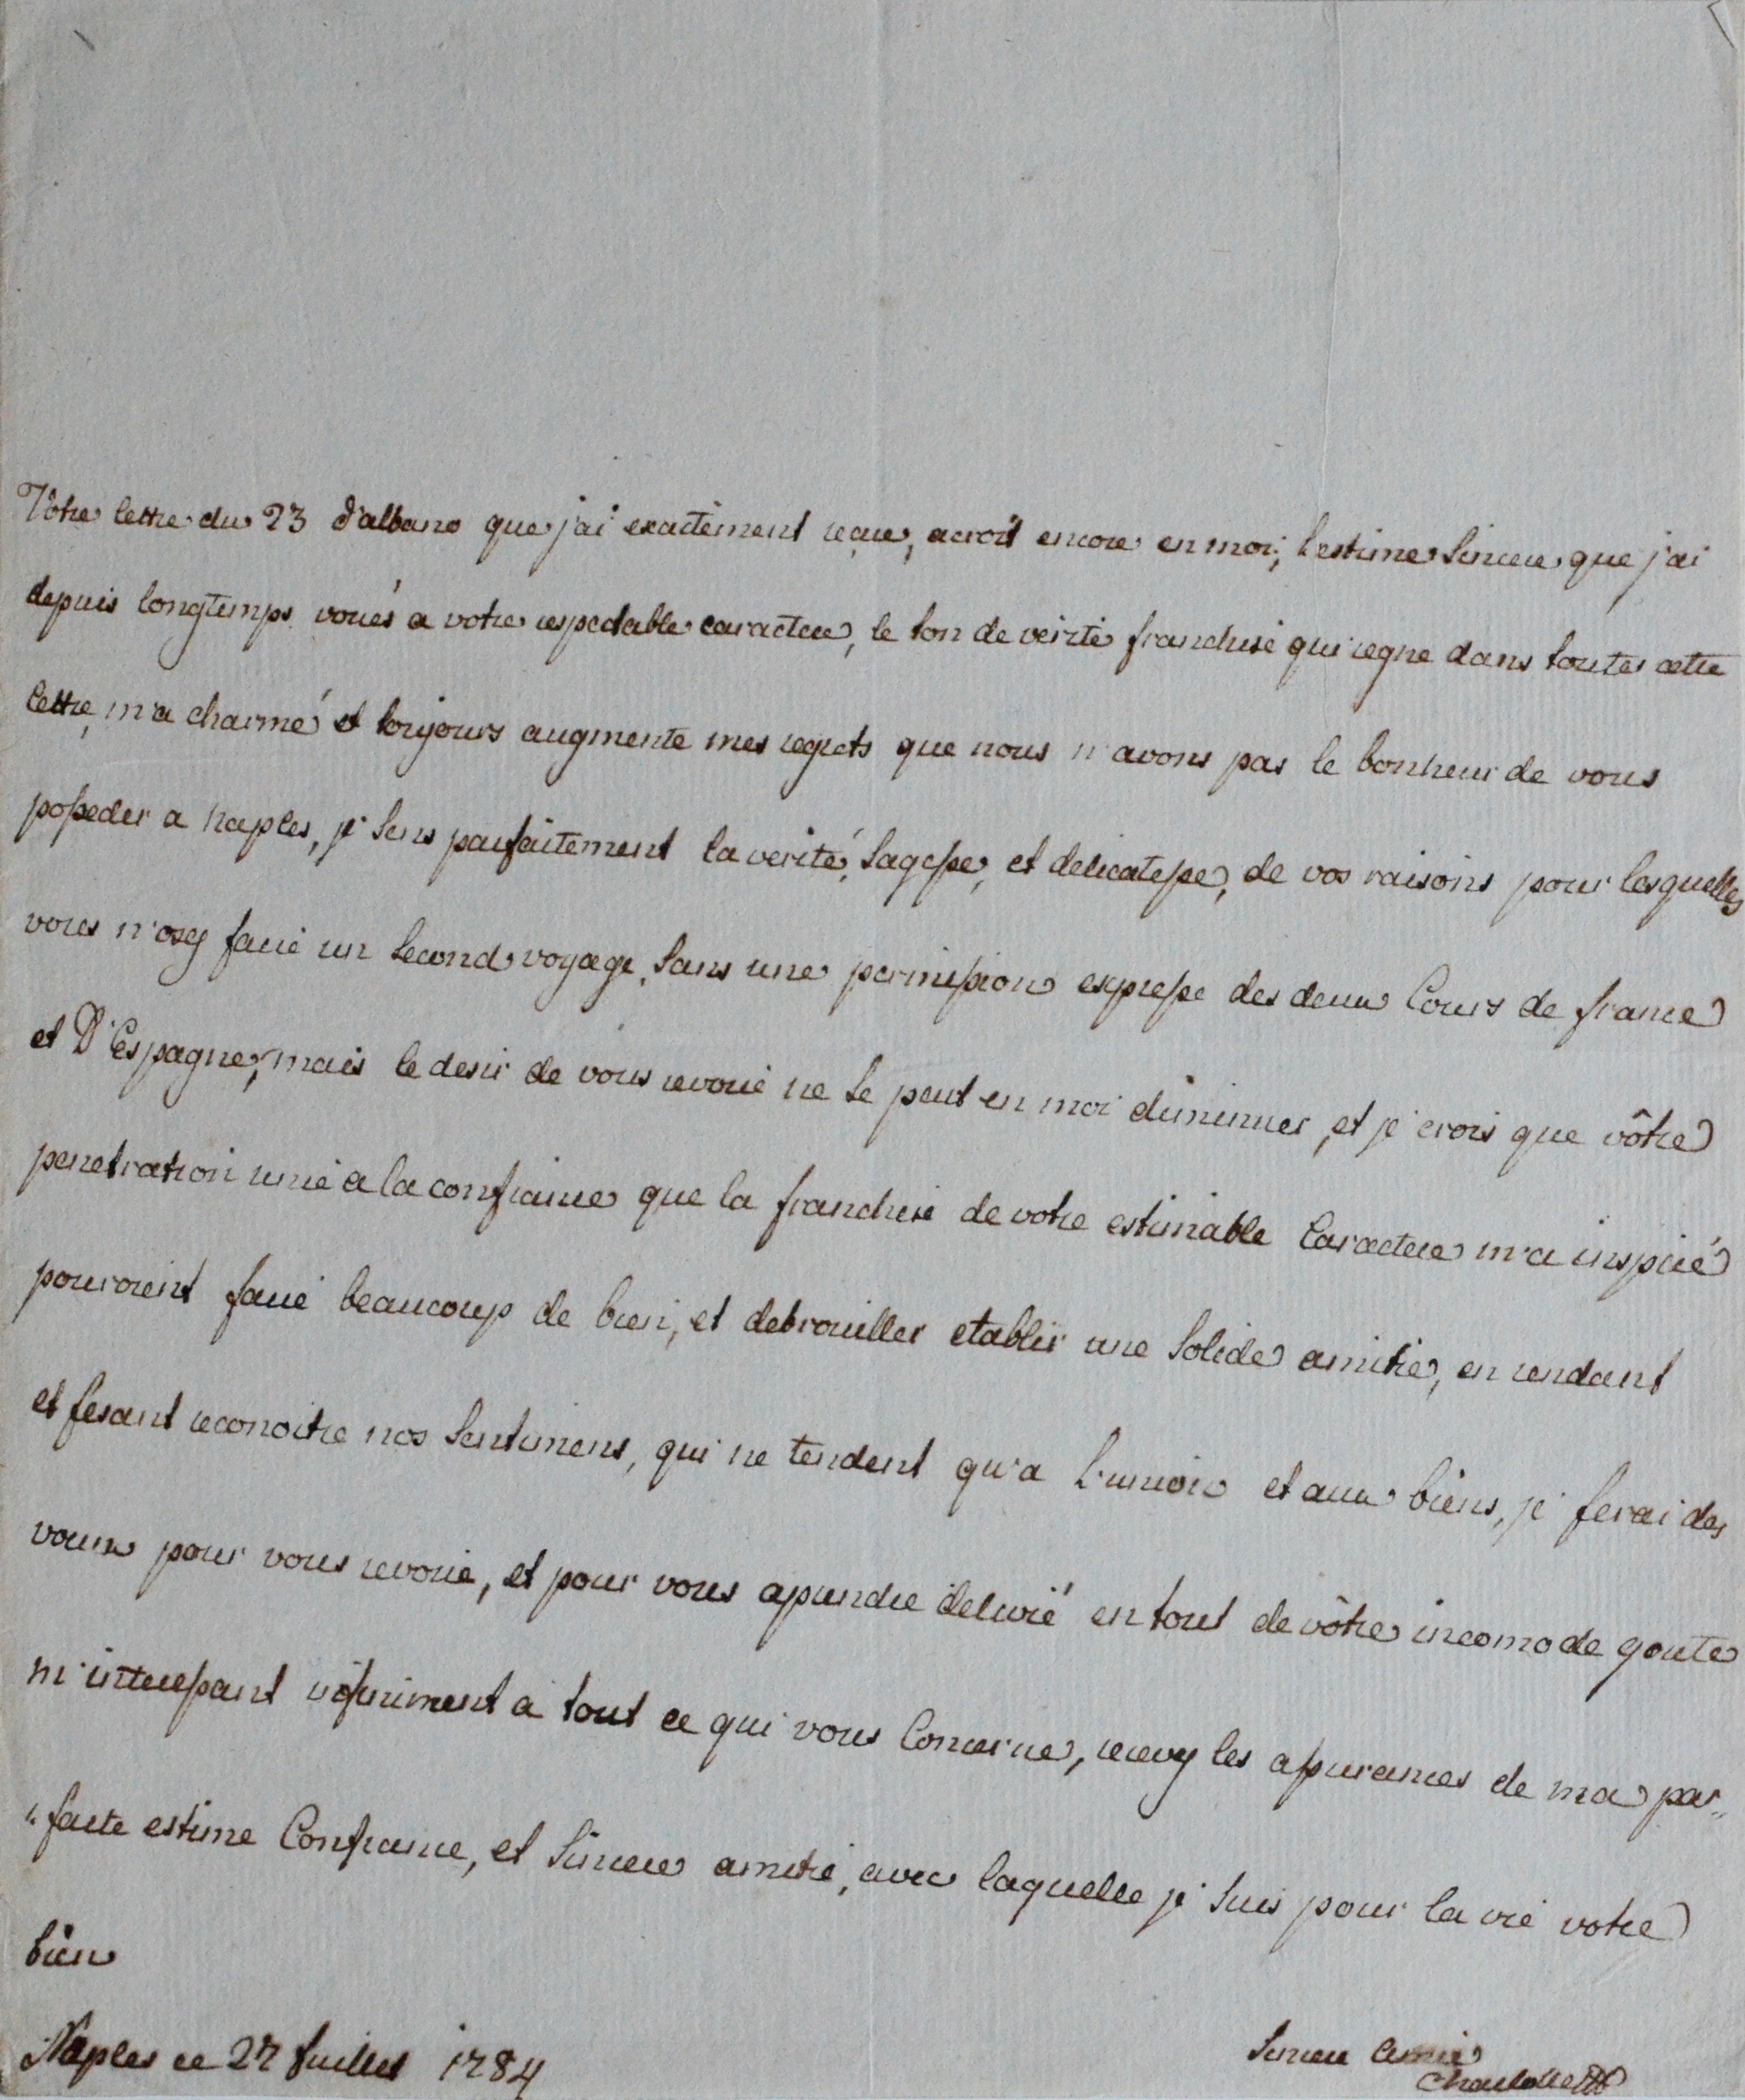 Vôtre lettre du 23 d'albano que j'ai exactement reçue, acroit encore en moi, l'estime sincere que j'ai
depuis longtemps voués a votre respectable caractere, le ton de verité franchise qui regne dans toutes cette
lettre, m'a charmé et toujours augmente mes regrets que nous n'avons pas le bonheur de vous
posseder a Naples, je sens parfaitement la verité, sagesse, et delicatesse, de vos raisons pour lesquelles
vous n'osez faire un second voyage, sans une permission expresse des deux Cours de france
et D'Espagne, mais le desir de vous revoir ne se peut en moi diminuer, et je crois que vôtre
penetration unie a la confiance que la franchise de votre estimable Caractere m'a inspiré
pouroient faire beaucoup de bien, et debrouiller etablir une solide amitie, en rendant
et fesant reconoitre nos sentimens, qui ne tendent qu'a l'union et aux biens, je ferai des
voeux pour vous revoir, et pour vous aprendre delivré en tout de vôtre incomode goute
m'interessant infiniment a tout ce qui vous Concerne, recevez les assurances de ma par„
„faite estime Confiance, et sincere amitié, avec laquelle je suis pour la vie votre
bien
Naples ce 27 Juillet 1784
sincere amie
Charlotte